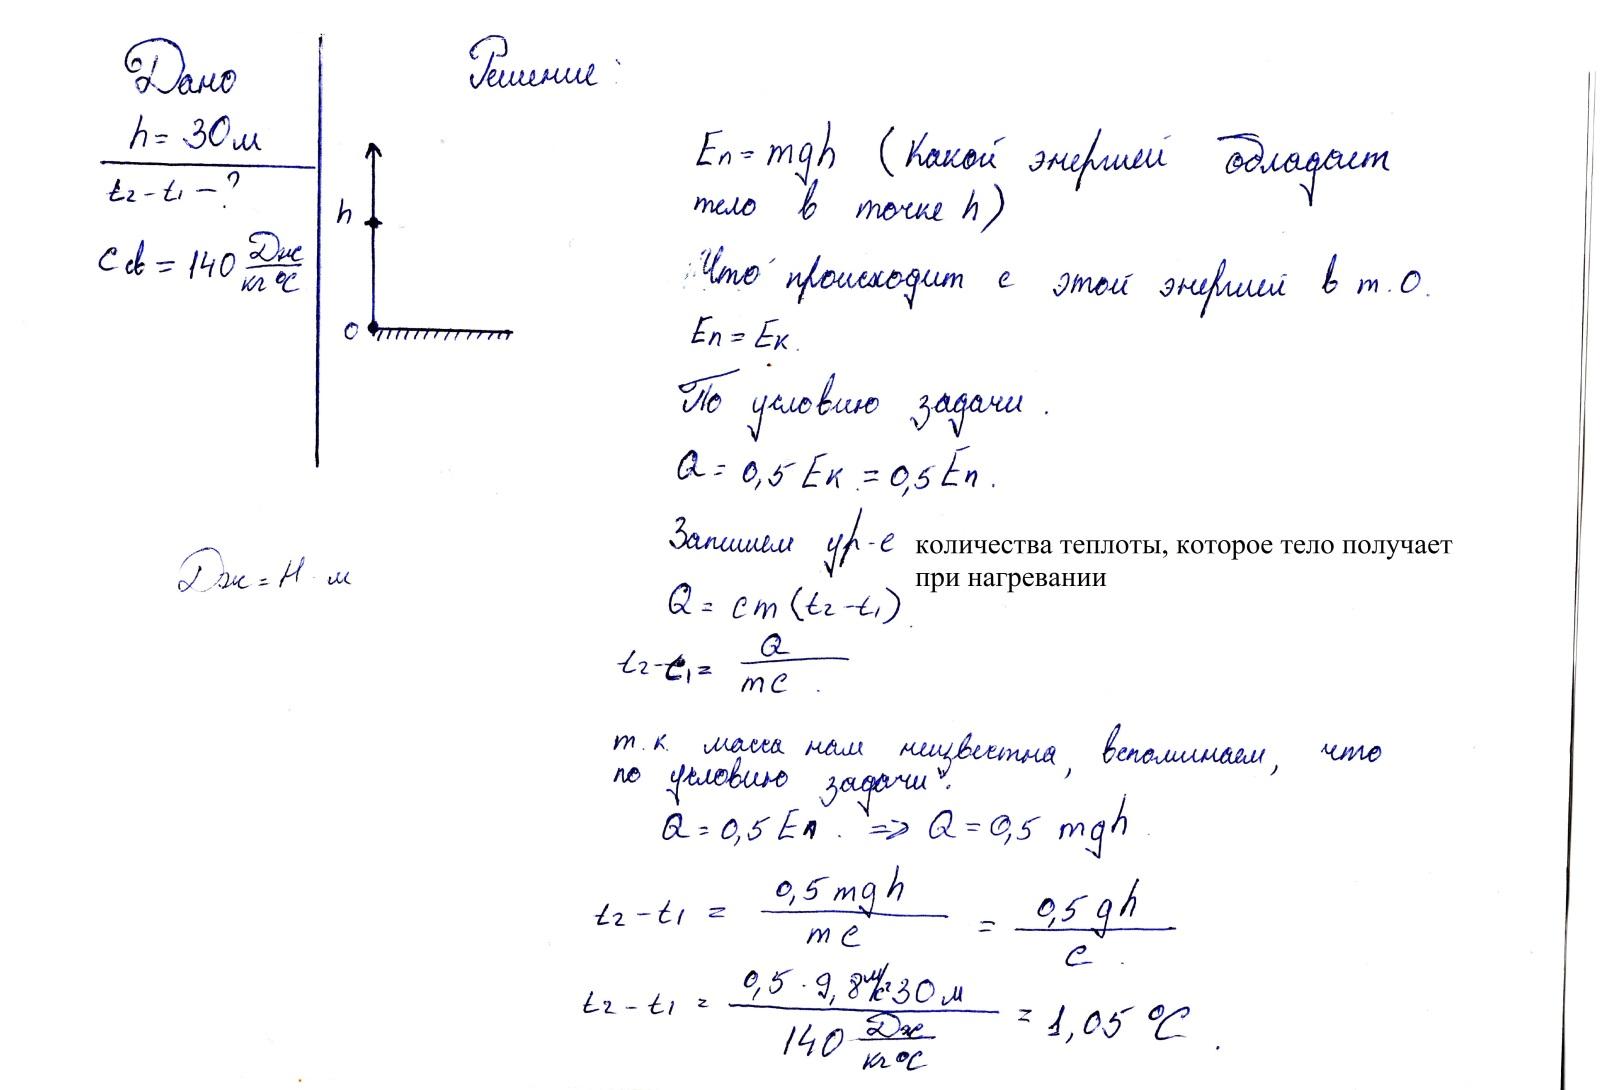 Дано
h = 30 м
t₂ - t₁ - ?
Cсв = 140 Дж/кг°C
h
0
Дж = Н · м
Решение:
Eп = mgh (Какой энергией обладает
тело в точке h)
Что происходит с этой энергией в т. О.
Eп = Eк.
По условию задачи.
Q = 0,5 Eк = 0,5 Eп.
Запишем ур-е количества теплоты, которое тело получает
при нагревании
Q = cm (t₂ - t₁)
t₂ - t₁ = Q/mc.
т.к. масса нам неизвестна, вспоминаем, что
по условию задачи:
Q = 0,5 Eп. => Q = 0,5 mgh.
t₂ - t₁ = 0,5 mgh/mc = 0,5 gh/c.
t₂ - t₁ = 0,5 · 9,8 м/с² 30 м/140 Дж/кг°C = 1,05 °C.